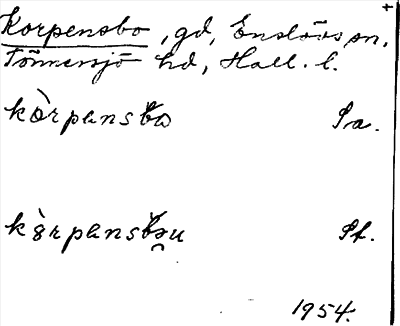 Korpensbo, gd, Enslövs sn,
Tönnersjö hd, Hall. l.
kòrpənsbo Sa.
kòrpənsbəu St.
1954.